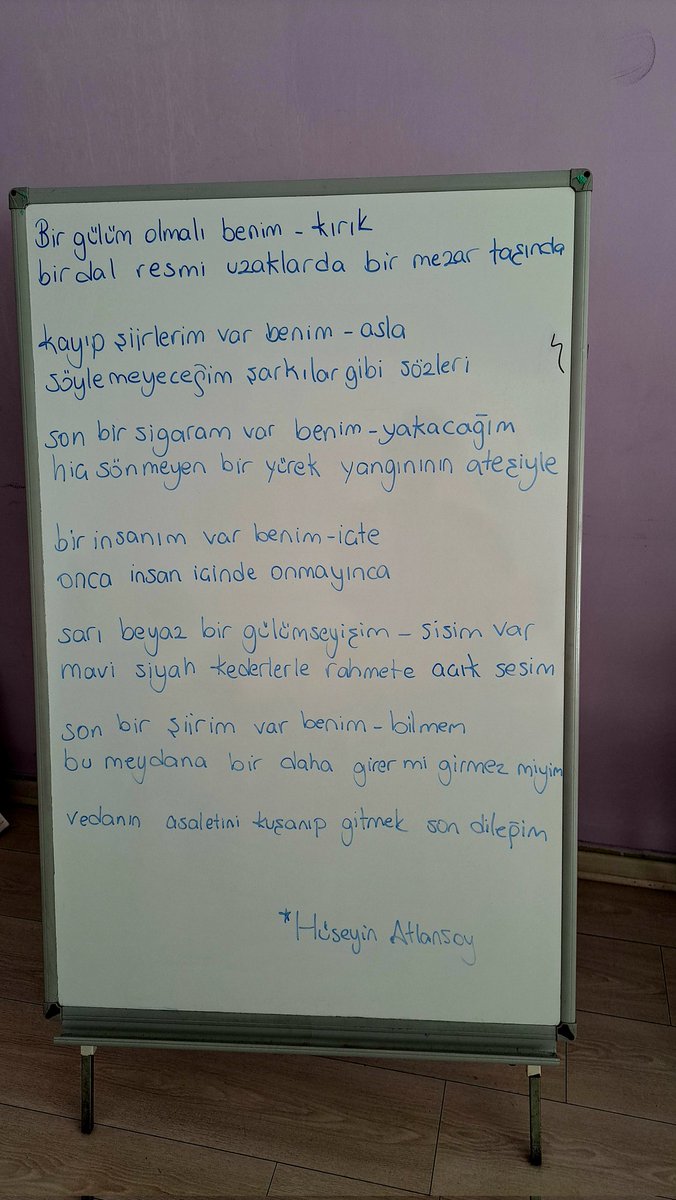 Bir gülüm olmalı benim - kırık
bir dal resmi uzaklarda bir mezar taşında
kayıp şiirlerim var benim - asla
söylemeyeceğim şarkılar gibi sözleri
son bir sigaram var benim - yakacağım
hiç sönmeyen bir yürek yangınının ateşiyle
bir insanım var benim - içte
onca insan içinde onmayınca
sarı beyaz bir gülümseyişim - sisim var
mavi siyah kederlerle rahmete açık sesim
son bir şiirim var benim - bilmem
bu meydana bir daha girer mi girmez miyim
vedanın asaletini kuşanıp gitmek son dileğim
*Hüseyin Atlansoy